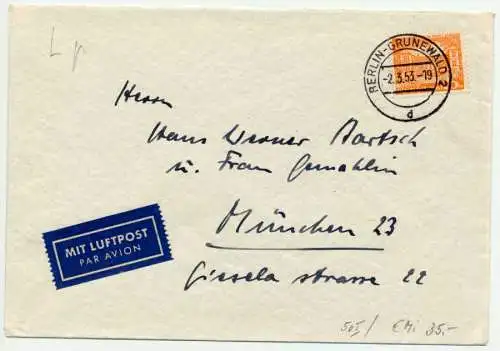 BERLIN-GRUNEWALD 2
-2.3.53.-19
d
Herrn
Hans Werner Bartsch
u. Frau Gemahlin
München 23
Gisela strasse 22
MIT LUFTPOST
PAR AVION
35.-